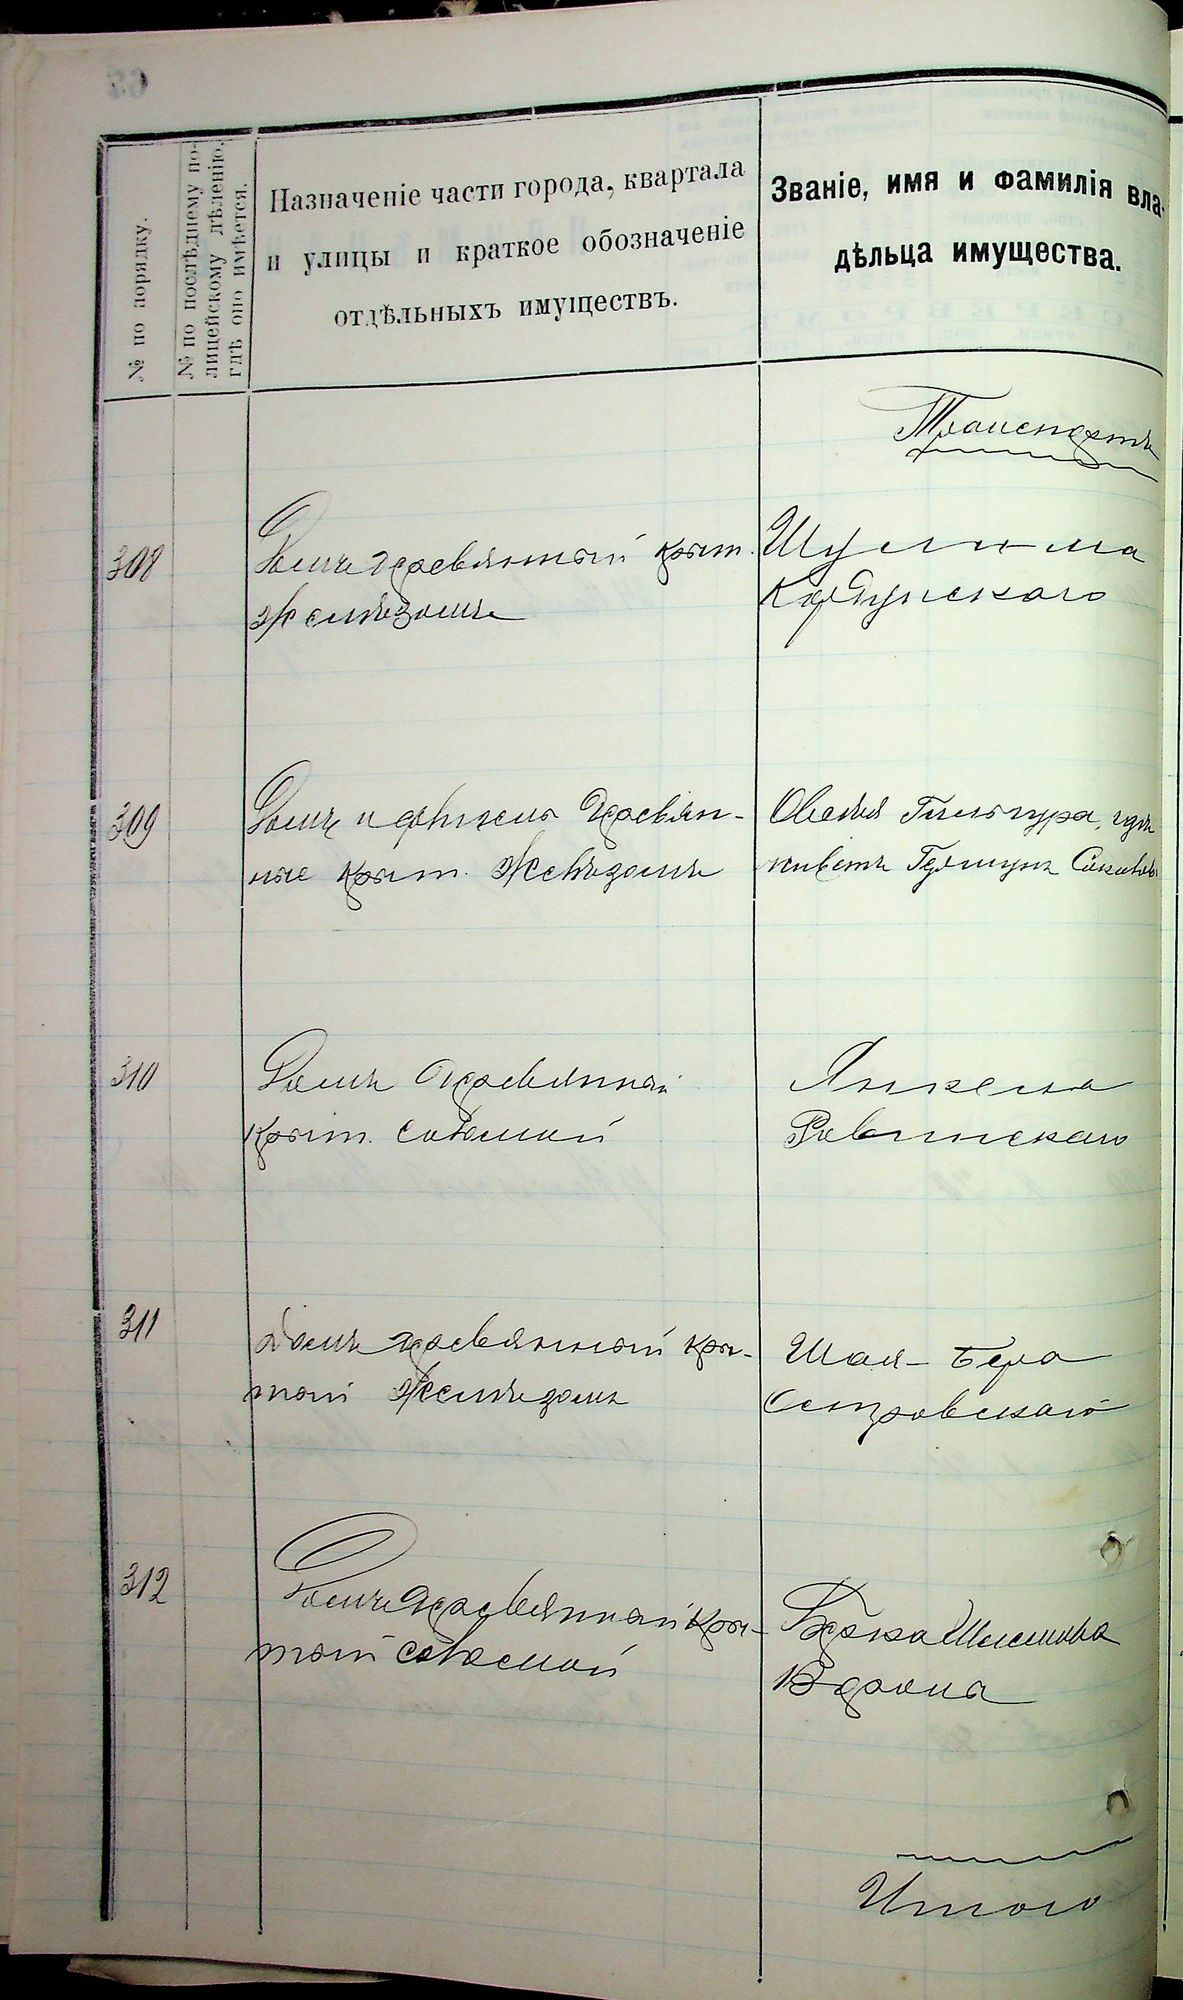 № по порядку.
№ по послѣднему по-
лицейскому дѣленію,
гдѣ оно имѣется.
Назначеніе части города, квартала
и улицы и краткое обозначеніе
отдѣльныхъ имуществъ.
Званіе, имя и фамилія вла-
дѣльца имущества.
Транспортъ
308
Домъ деревянный крыт.
желѣзомъ
Шулима
309
Домъ и флигель деревян-
ные крыт. желѣзомъ
Овсея
живетъ
310
Домъ деревянный
крыт. соломой
Янкеля
Равинскаго
311
Домъ деревянный кры-
тый желѣзомъ
Шая-Бера
Островскаго
312
Домъ деревянный кры-
тый соломой
Итого